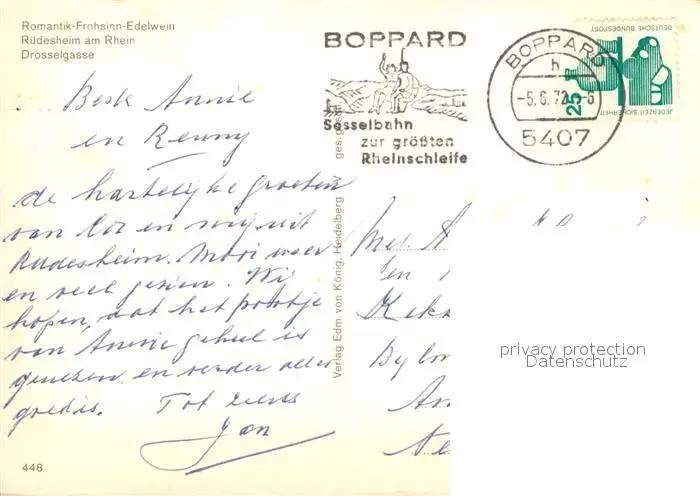 Romantik-Frohsinn-Edelwein
Rüdesheim am Rhein
Drosselgasse
Beste Annie
en Renny
de hartelijke groeten
van Cor en mij uit
Rudesheim. Mooi weer
en veel gezien. Wij
hopen, dat het pootje
van Annie geheel is
genezen en verder alles
goed is. Tot ziens
Jan
448
Verlag Edm. von König, Heidelberg
ges. gesch.
BOPPARD
Sesselbahn
zur größten
Rheinschleife
BOPPARD
h
-5.6.72
5407
25
DEUTSCHE BUNDESPOST
JEDERZEIT SICHERHEIT
en
privacy protection
Datenschutz